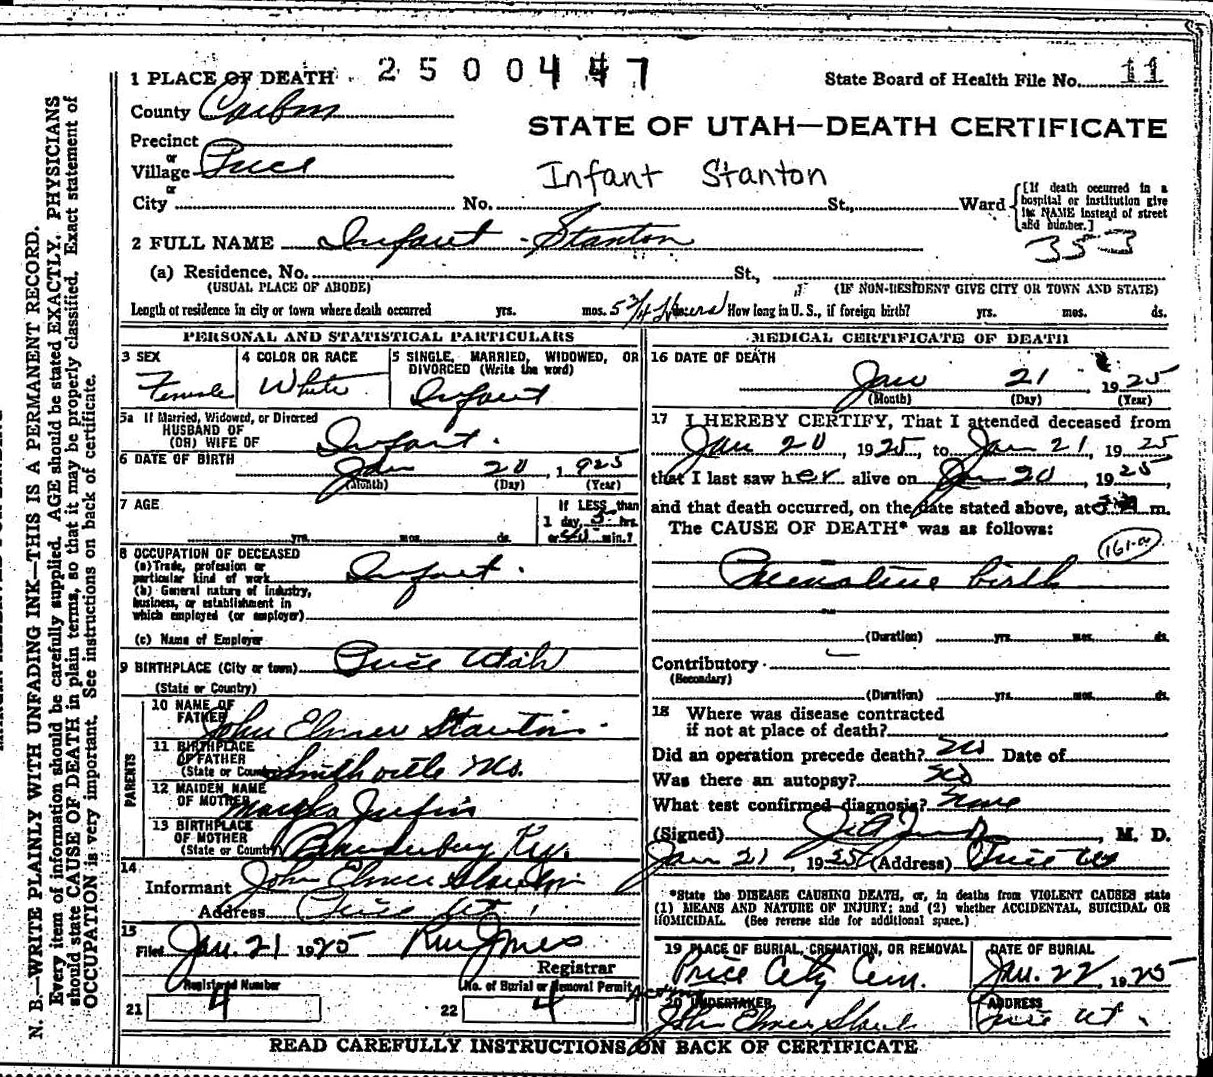 1 PLACE OF DEATH 2500447 State Board of Health File No. 11
County Carbon
STATE OF UTAH—DEATH CERTIFICATE
Precinct
or
Village Price
Infant Stanton
or
City No. St., Ward
[If death occurred in a hospital or institution give its NAME instead of street and number.]
353
2 FULL NAME Infant Stanton
(a) Residence, No. St.,
(USUAL PLACE OF ABODE) (IF NON-RESIDENT GIVE CITY OR TOWN AND STATE)
Length of residence in city or town where death occurred yrs. mos. 5 3/4 Hours How long in U. S., if foreign birth? yrs. mos. ds.
PERSONAL AND STATISTICAL PARTICULARS
3 SEX
Female
4 COLOR OR RACE
White
5 SINGLE, MARRIED, WIDOWED, OR
DIVORCED (Write the word)
Infant
5a If Married, Widowed, or Divorced
HUSBAND OF
(OR) WIFE OF Infant.
6 DATE OF BIRTH Jan 20, 1925
(Month) (Day) (Year)
7 AGE
yrs. mos. ds.
If LESS than
1 day, 5 hrs.
or 40 min.?
8 OCCUPATION OF DECEASED
(a) Trade, profession or
particular kind of work Infant.
(b) General nature of industry,
business, or establishment in
which employed (or employer)
(c) Name of Employer
9 BIRTHPLACE (City or town) Price Utah
(State or Country)
PARENTS
10 NAME OF
FATHER John Elmer Stanton
11 BIRTHPLACE
OF FATHER
(State or Country) Smithville Mo.
12 MAIDEN NAME
OF MOTHER Martha
13 BIRTHPLACE
OF MOTHER
(State or Country) Brandenburg Ky.
14
Informant John Elmer Stanton
Address Price Ut
15
Filed Jan. 21 1925
Registrar
Registered Number
21 4
No. of Burial or Removal Permit
22 4
MEDICAL CERTIFICATE OF DEATH
16 DATE OF DEATH
Jan 21 1925
(Month) (Day) (Year)
17 I HEREBY CERTIFY, That I attended deceased from
Jan 20, 1925, to Jan 21, 1925
that I last saw her alive on Jan 20, 1925,
and that death occurred, on the date stated above, at m.
The CAUSE OF DEATH* was as follows:
161-a
Premature birth
(Duration) yrs. mos. ds.
Contributory
(Secondary)
(Duration) yrs. mos. ds.
18 Where was disease contracted
if not at place of death?
Did an operation precede death? No Date of
Was there an autopsy? No
What test confirmed diagnosis? None
(Signed) , M. D.
Jan 21, 1925 (Address) Price Ut
*State the DISEASE CAUSING DEATH, or, in deaths from VIOLENT CAUSES state
(1) MEANS AND NATURE OF INJURY; and (2) whether ACCIDENTAL, SUICIDAL OR
HOMICIDAL. (See reverse side for additional space.)
19 PLACE OF BURIAL, CREMATION, OR REMOVAL
Price City Cem.
DATE OF BURIAL
Jan. 22, 1925
Acting
20 UNDERTAKER
John Elmer Stanton
ADDRESS
Price Ut.
READ CAREFULLY INSTRUCTIONS ON BACK OF CERTIFICATE
N. B.—WRITE PLAINLY WITH UNFADING INK—THIS IS A PERMANENT RECORD.
Every item of information should be carefully supplied. AGE should be stated EXACTLY. PHYSICIANS
should state CAUSE OF DEATH in plain terms, so that it may be properly classified. Exact statement of
OCCUPATION is very important. See instructions on back of certificate.